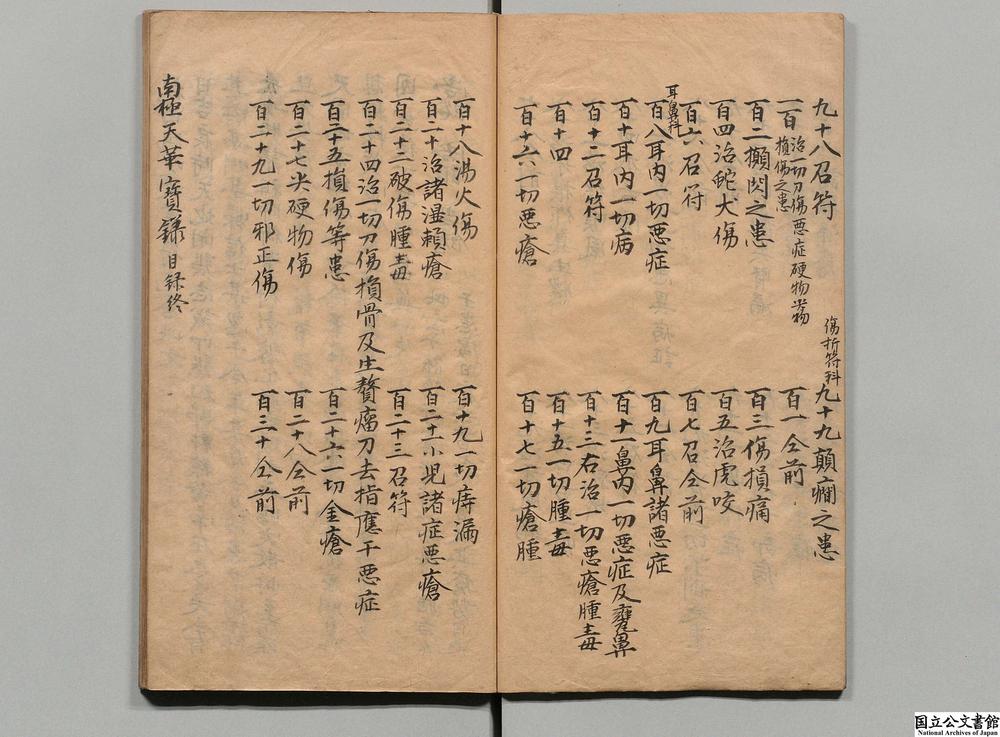 九十八召符
傷折符科
九十九顛癇之患
一百治一切刀傷悪症硬物尖物
損傷之患
百一仝前
百二攧閃之患
百三傷損痛
百四治蛇犬傷
百五治虎咬
百六召符
百七召仝前
耳鼻科
百八耳内一切悪症
百九耳鼻諸悪症
百十耳内一切病
百十一鼻内一切悪症及甕鼻
百十二召符
百十三右治一切悪瘡腫毒
百十四
百十五一切腫毒
百十六一切悪瘡
百十七一切瘡腫
百十八湯火傷
百十九一切痔漏
百二十治諸湿頼瘡
百二十一小児諸症悪瘡
百二十二破傷腫毒
百二十三召符
百二十四治一切刀傷損骨及生贅瘤刀去指應干悪症
百二十五損傷等患
百二十六一切金瘡
百二十七尖硬物傷
百二十八仝前
百二十九一切邪正傷
百三十仝前
南極天華寶籙目録終
国立公文書館
National Archives of Japan